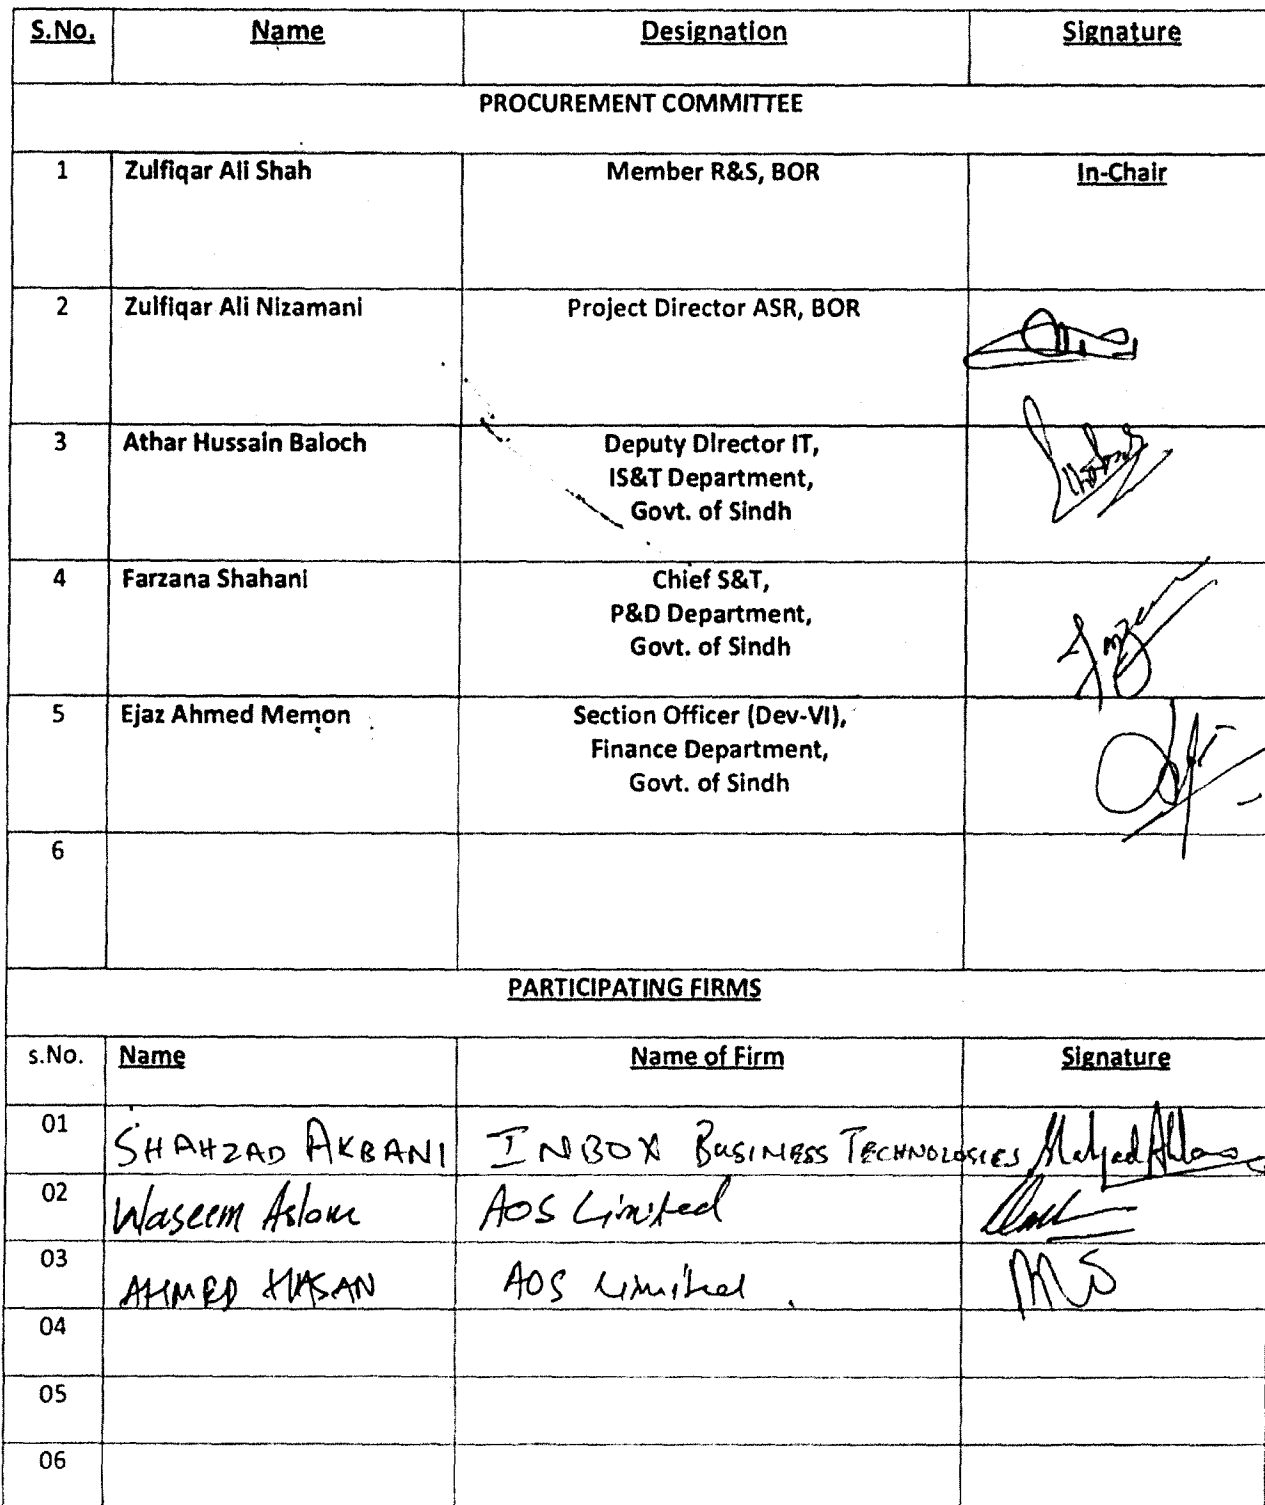 S.No. Name Designation Signature
PROCUREMENT COMMITTEE
1 Zulfiqar Ali Shah Member R&S, BOR In-Chair
2 Zulfiqar Ali Nizamani Project Director ASR, BOR
3 Athar Hussain Baloch Deputy Director IT,
IS&T Department,
Govt. of Sindh
4 Farzana Shahani Chief S&T,
P&D Department,
Govt. of Sindh
5 Ejaz Ahmed Memon Section Officer (Dev-VI),
Finance Department,
Govt. of Sindh
6
PARTICIPATING FIRMS
s.No. Name Name of Firm Signature
01 SHAHZAD AKBANI INBOX BUSINESS TECHNOLOGIES
02 Waseem Aslam AOS Limited
03 AHMED HASAN AOS Limited.
04
05
06